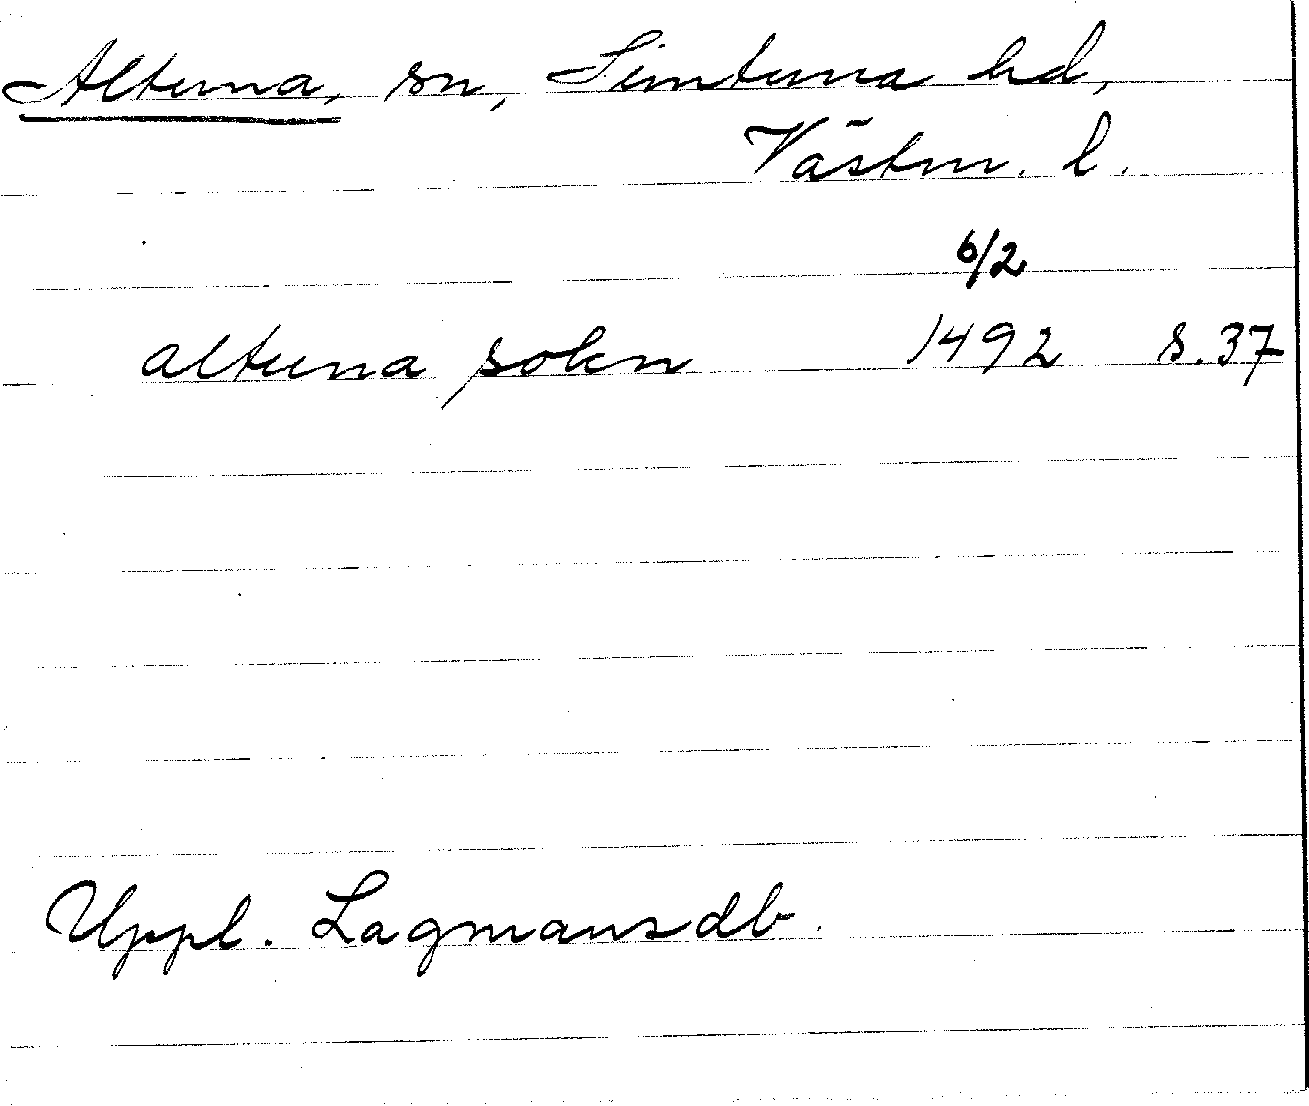 Altuna, sn, Simtuna hd,
Västm. l.
6/2
altuna sokn 1492 s. 37
Uppl. Lagmansdb.